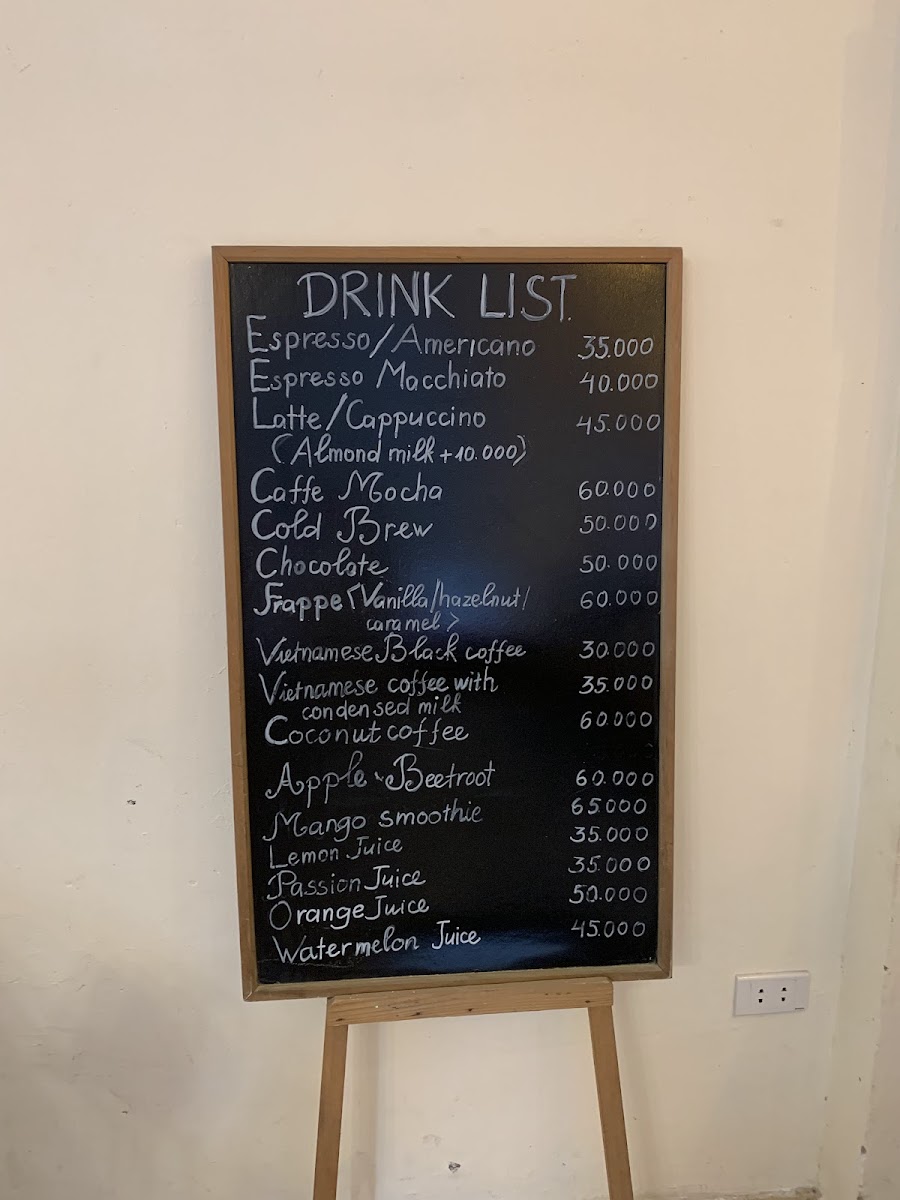 DRINK LIST
Espresso/Americano 35.000
Espresso Macchiato 40.000
Latte/Cappuccino 45.000
(Almond milk +10.000)
Caffe Mocha 60.000
Cold Brew 50.000
Chocolate 50.000
Frappe (Vanilla/hazelnut/ 60.000
caramel >
Vietnamese Black coffee 30.000
Vietnamese coffee with 35.000
condensed milk
Coconut coffee 60.000
Apple - Beetroot 60.000
Mango smoothie 65.000
Lemon Juice 35.000
Passion Juice 35.000
Orange Juice 50.000
Watermelon Juice 45.000